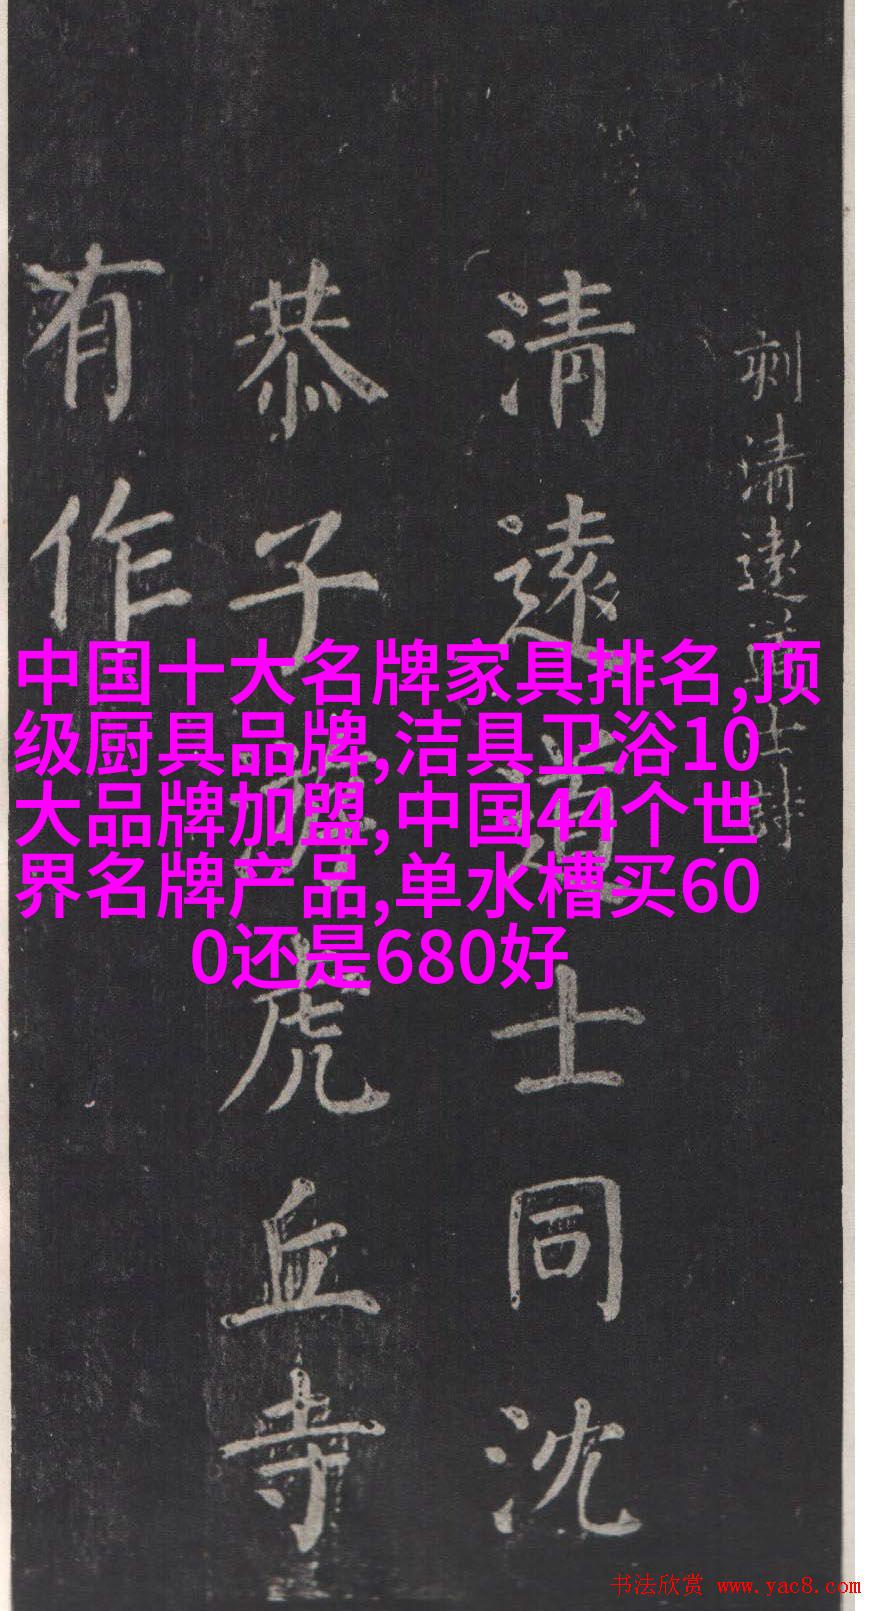 刻清遠道士詩
清遠道士同沈
恭子遊虎丘寺
有作
中国十大名牌家具排名,顶
级厨具品牌,洁具卫浴10
大品牌加盟,中国44个世
界名牌产品,单水槽买60
0还是680好
书法欣赏 www.yac8.com